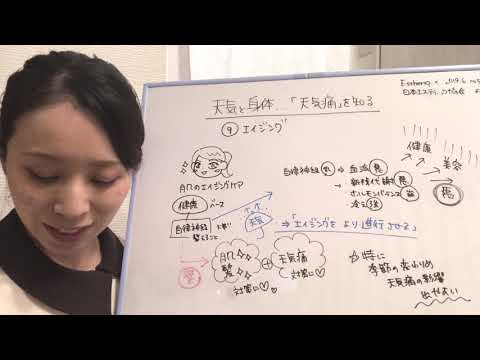 天気と身体…「天気痛」を知る
⑨ エイジング
肌のエイジングケア
健康 ベース
自律神経
整えること
天気
肌
髪
対策に♡
+
天気痛
対策に♡
自律神経 乱 ⇒ 血流 悪
→ 新陳代謝 悪
→ ホルモンバランス
→ 冷え 強
⇒「エイジングを より進行させる」
健康
美容
悪
☆特に
季節の変わりめ
天気痛の影響
出やすい